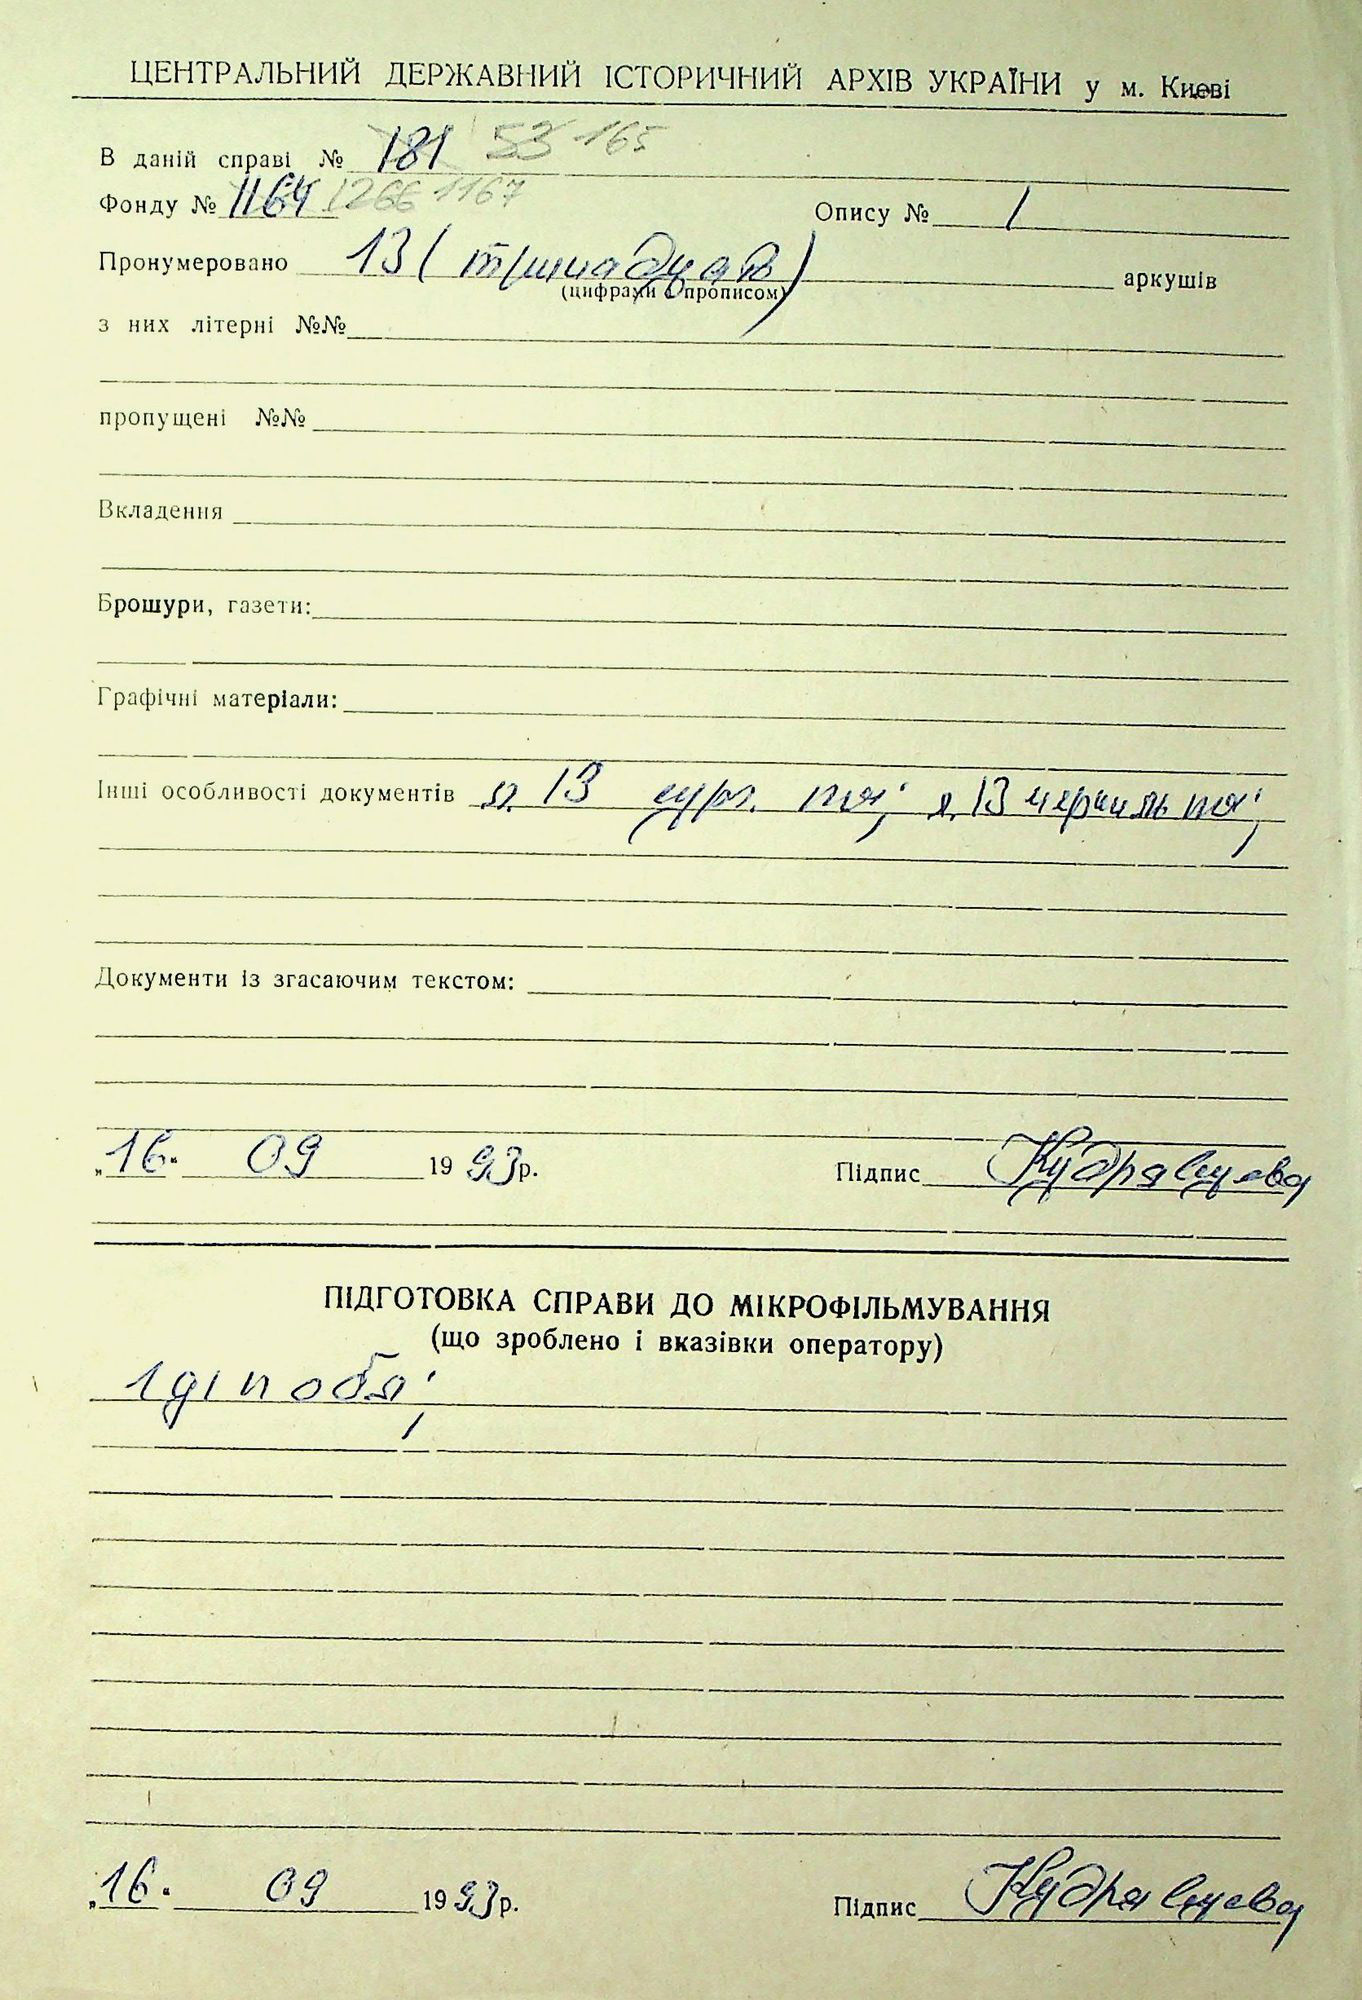 ЦЕНТРАЛЬНИЙ ДЕРЖАВНИЙ ІСТОРИЧНИЙ АРХІВ УКРАЇНИ у м. Києві
В даній справі № 181 53 165
Фонду № 1164 1266 1167 Опису № 1
Пронумеровано 13 (тринадцять) аркушів
(цифрами і прописом)
з них літерні №№
пропущені №№
Вкладення
Брошури, газети:
Графічні матеріали:
Інші особливості документів а. 13 сург. п-ка; а. 13
Документи із згасаючим текстом:
„16“ 09 1993 р. Підпис Кудрявцева
ПІДГОТОВКА СПРАВИ ДО МІКРОФІЛЬМУВАННЯ
(що зроблено і вказівки оператору)
„16“ 09 1993 р. Підпис Кудрявцева